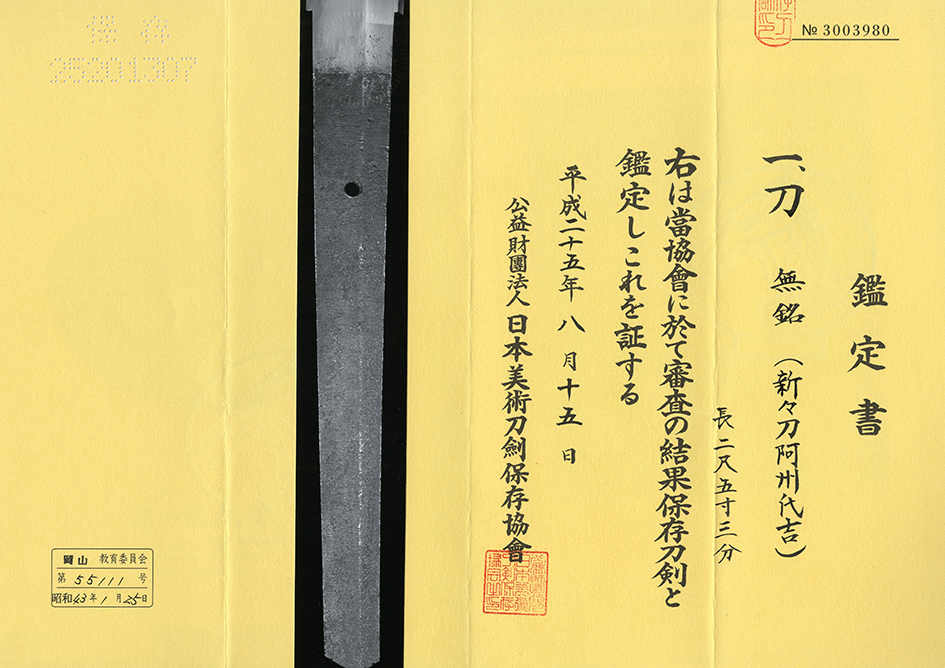 № 3003980
鑑定書
一、刀 無銘（新々刀阿州氏吉）
長二尺五寸三分
右は當協會に於て審査の結果保存刀剣と
鑑定しこれを証する
平成二十五年八月十五日
公益財團法人日本美術刀劍保存協會
保存
25201307
岡山 教育委員会
第 55111 号
昭和43年1月25日